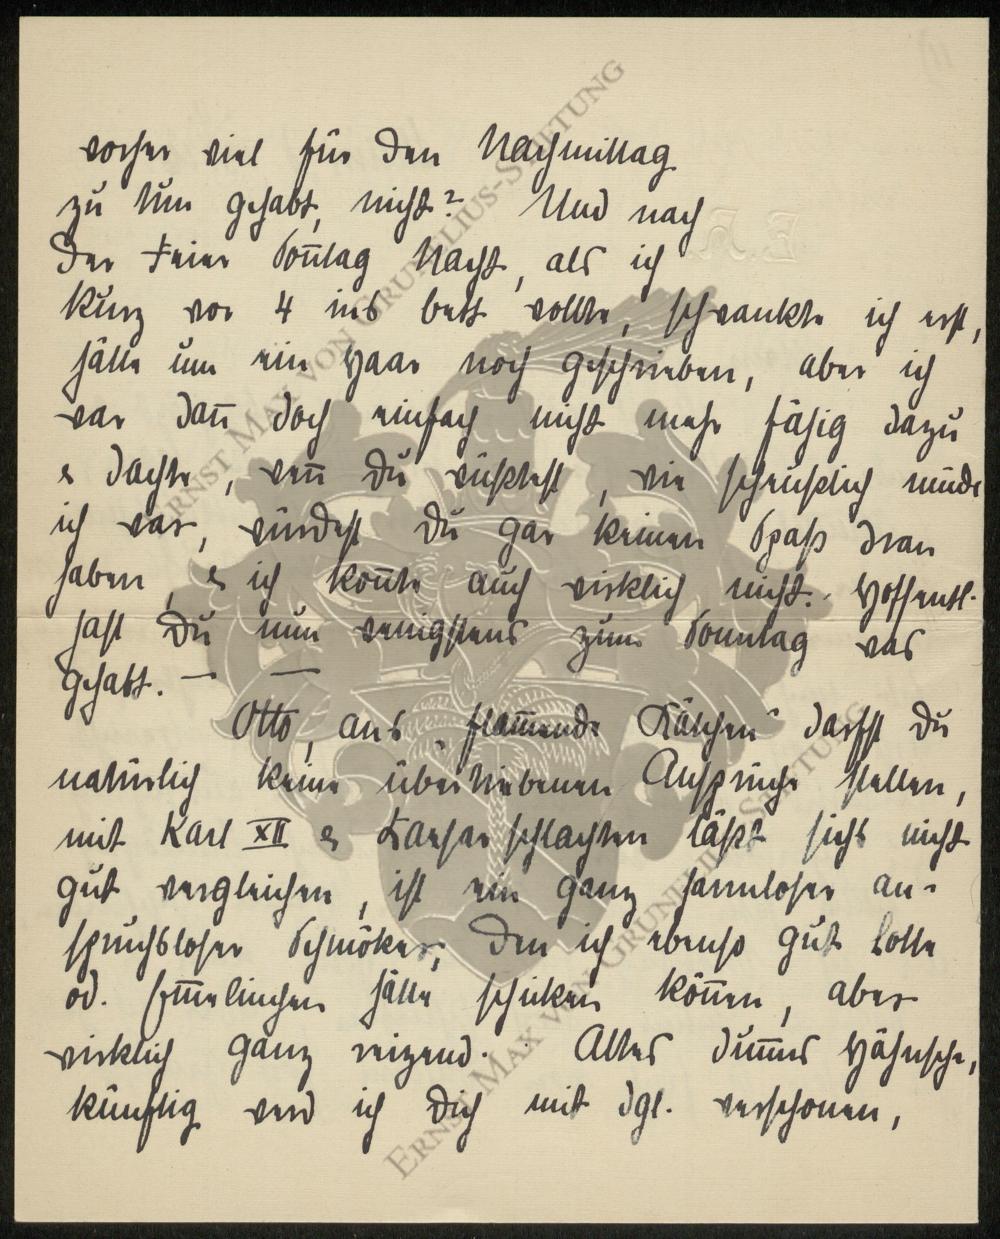 vorher viel für den Nachmittag
zu tun gehabt, nicht? Und nach
der Feier Soñtag Nacht, als ich
kurz vor 4 ins bett wollte, schwankte ich erst,
hätte um ein Haar noch geschrieben, aber ich
war dañ doch einfach nicht mehr fähig dazu
& dachte, weñ Du wüßtest, wie scheußlich müde
ich war, würdest Du gar keinen Spaß dran
haben, & ich koñte auch wirklich nicht. Hoffentl.
hast Du nun wenigstens zum Sonntag was
gehabt. — —
Otto, ans „flam̄ende Kätchen" darfst Du
natürlich keine übertriebenen Ansprüche stellen,
mit Karl XII & schlachten läßt sichs nicht
gut vergleichen, ist ein ganz harmloser an-
spruchsloser Schmöker, den ich ebenso gut Lotte
od. hätte schicken köñen, aber
wirklich ganz reizend. Altes dum̄es Hähnsche,
künftig werd ich Dich mit dgl. verschonen,
E.H.
ERNST MAX VON GRUNELIUS-STIFTUNG
ERNST MAX VON GRUNELIUS-STIFTUNG